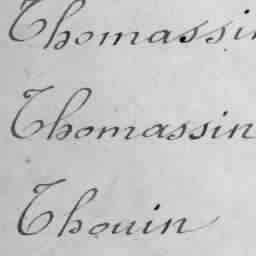 Thomassin
Thomassin
Thouin